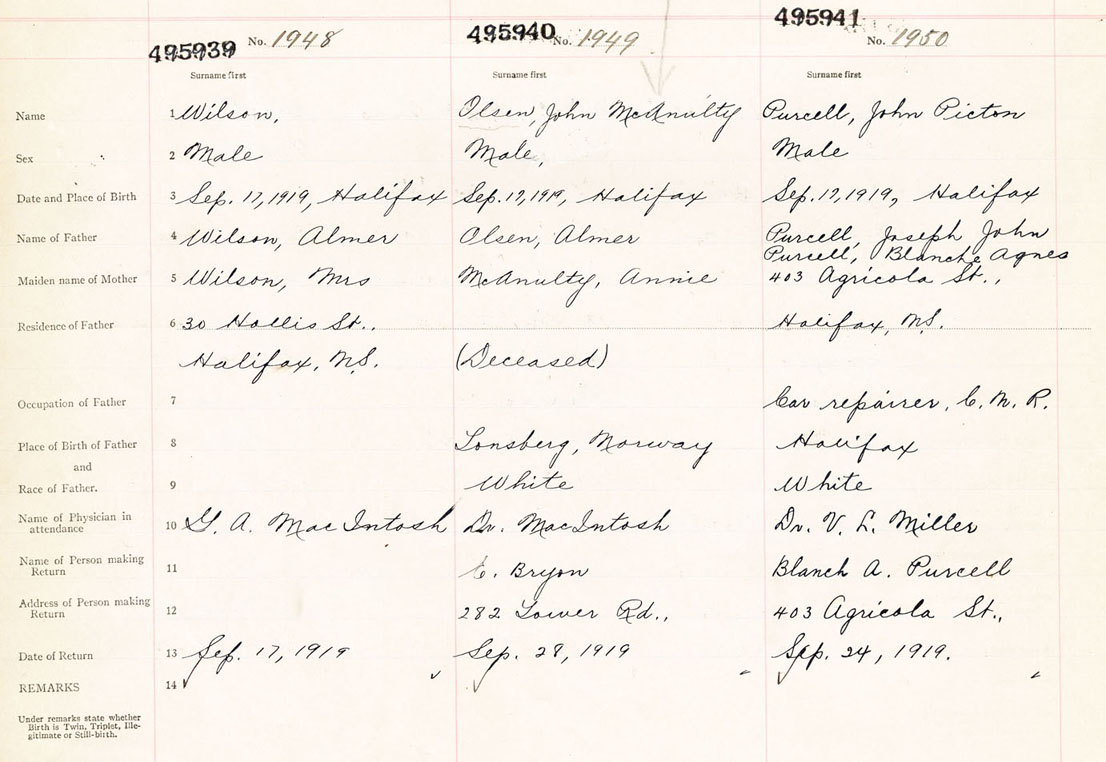 495939 No. 1948 495940 No. 1949 495941 No. 1950
Surname first Surname first Surname first
Name 1 Wilson, Olsen, John McAnulty Purcell, John Picton
Sex 2 Male Male, Male
Date and Place of Birth 3 Sep. 17, 1919, Halifax Sep. 17, 1919, Halifax Sep. 17, 1919, Halifax
Name of Father 4 Wilson, Almer Olsen, Almer Purcell, Joseph John
Purcell, Blanche Agnes
Maiden name of Mother 5 Wilson, Mrs McAnulty, Annie 403 Agricola St.,
Residence of Father 6 30 Hollis St., Halifax, N.S.
Halifax, N.S. (Deceased)
Occupation of Father 7 Car repairer, C. N. R.
Place of Birth of Father 8 Tonsberg, Norway Halifax
and
Race of Father. 9 White White
Name of Physician in
attendance 10 G. A. MacIntosh Dr. MacIntosh Dr. V. L. Miller
Name of Person making
Return 11 Bryon Blanch A. Purcell
Address of Person making
Return 12 282 Tower Rd., 403 Agricola St.,
Date of Return 13 Sep. 17, 1919 Sep. 28, 1919 Sep. 24, 1919.
REMARKS 14
Under remarks state whether
Birth is Twin, Triplet, Ille-
gitimate or Still-birth.